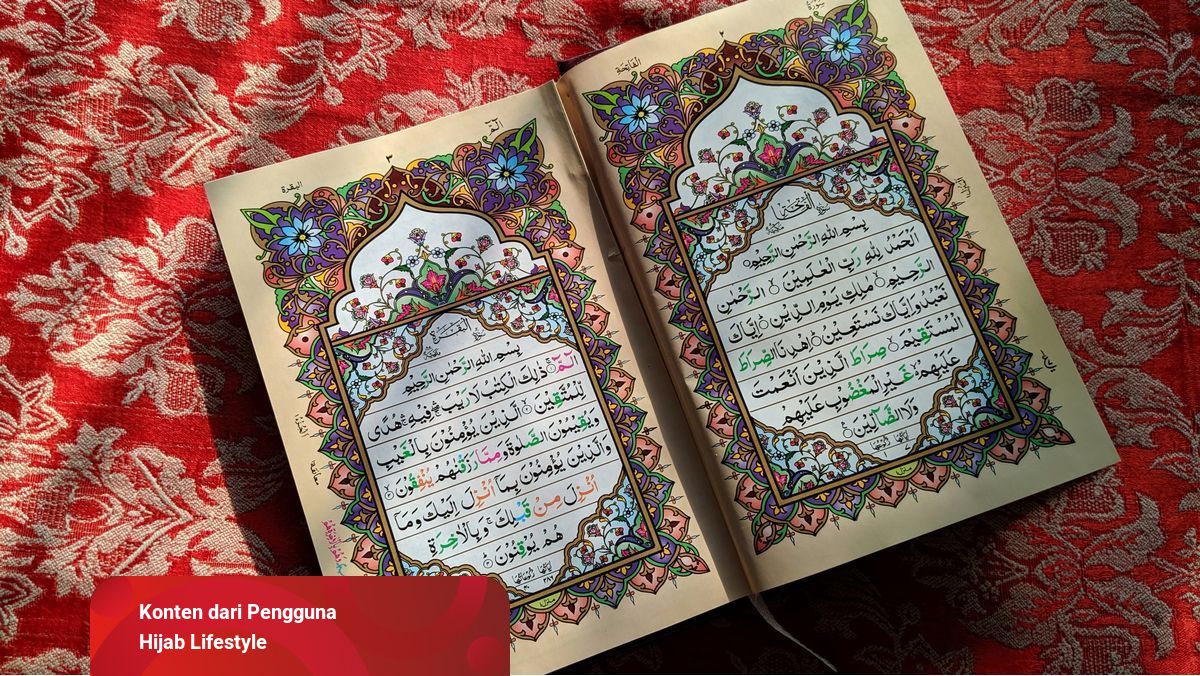 ٢
الفاتحة
بِسْمِ اللهِ الرَّحْمٰنِ الرَّحِيْمِ
اَلْحَمْدُ لِلّٰهِ رَبِّ الْعٰلَمِيْنَ ۙ الرَّحْمٰنِ
الرَّحِيْمِ ۙ مٰلِكِ يَوْمِ الدِّيْنِ ؕ اِيَّاكَ
نَعْبُدُ وَاِيَّاكَ نَسْتَعِيْنُ ؕ اِهْدِنَا الصِّرَاطَ
الْمُسْتَقِيْمَ ۙ صِرَاطَ الَّذِيْنَ اَنْعَمْتَ
عَلَيْهِمْ ۙ غَيْرِ الْمَغْضُوْبِ عَلَيْهِمْ
وَلَا الضَّآلِّيْنَ
٣
البقرة
بِسْمِ اللهِ الرَّحْمٰنِ الرَّحِيْمِ
الٓمّٓ ۚ ذٰلِكَ الْكِتٰبُ لَا رَيْبَ ۛ فِيْهِ ۛ هُدًى
لِّلْمُتَّقِيْنَ ۙ الَّذِيْنَ يُؤْمِنُوْنَ بِالْغَيْبِ
وَيُقِيْمُوْنَ الصَّلٰوةَ وَمِمَّا رَزَقْنٰهُمْ يُنْفِقُوْنَ ۙ
وَالَّذِيْنَ يُؤْمِنُوْنَ بِمَآ اُنْزِلَ اِلَيْكَ وَمَآ
اُنْزِلَ مِنْ قَبْلِكَ ۚ وَبِالْاٰخِرَةِ
هُمْ يُوْقِنُوْنَ ؕ
Konten dari Pengguna
Hijab Lifestyle